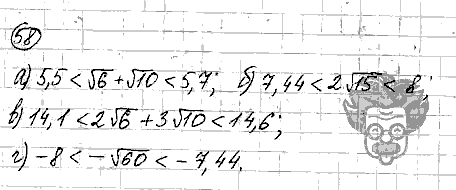 58
а) 5,5 < √6 + √10 < 5,7; б) 7,44 < 2√15 < 8;
в) 14,1 < 2√6 + 3√10 < 14,6;
г) -8 < -√60 < -7,44.